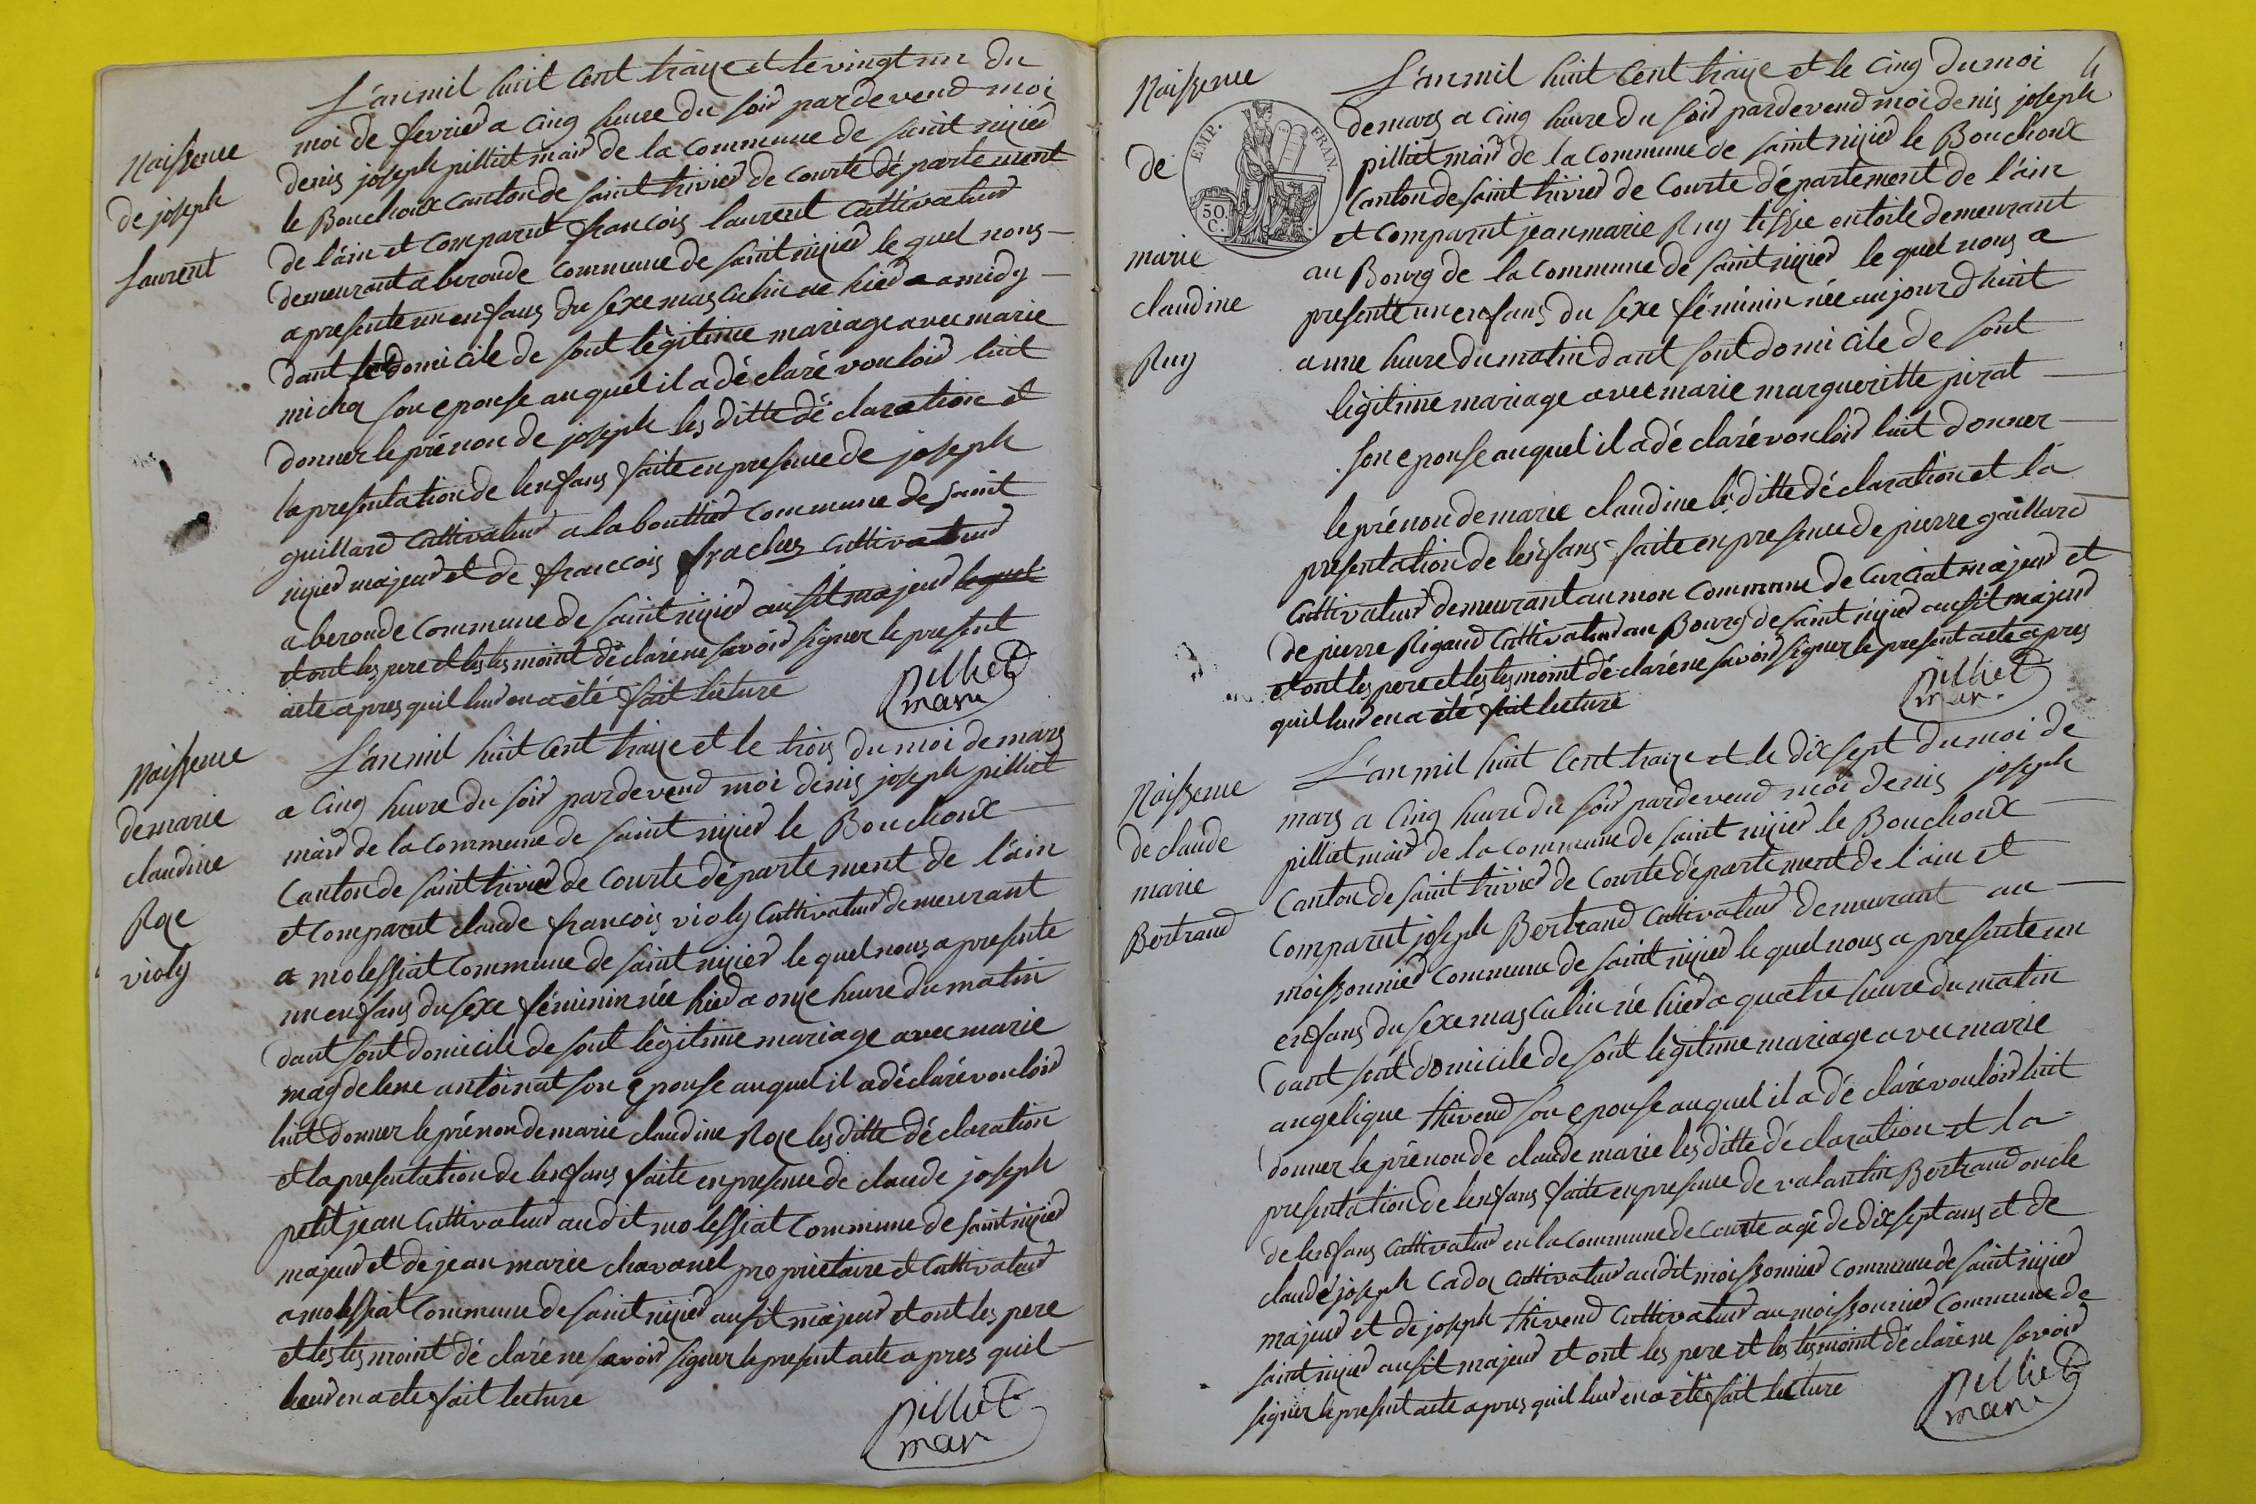 L'an mil huit cent traize et le vingt un du
moi de fevrier a cinq heure du soir pardevend moi
denis joseph pilliat mair de la commune de saint nizier
le Bouchoux canton de saint trivier de courte département
de l'ain et comparut francois laurent cultivateur
demeurant a beroude commune de saint nizier le quel nous
a presente un enfans du sexe masculin ne hier a midy
dant sont domicile de sont lègitime mariage avec marie
son epouse auquel il a déclaré vouloir luit
donner le prénon de joseph les ditte déclaration et
la presentation de lenfans faite en presence de joseph
guillard cultivateur a la bouttier commune de saint
nizier majeur et de francois cultivateur
a beroude commune de saint nizier ausit majeur lequel
et ont les pere et les tesmoint déclaré ne savoir signer le present
acte apres quil leur en a été fait lecture
pilliat
mair
Naissence
de joseph
laurent
L'an mil huit cent traize et le trois du moi de mars
a cinq heure du soir pardevend moi denis joseph pilliat
mair de la commune de saint nizier le Bouchoux
Canton de saint trivier de courte département de l'ain
et comparut claude francois violy cultivateur demeurant
a molessiat commune de saint nizier le quel nous a presente
un enfans du sexe féminin née hier a onze heure du matin
dant sont domicile de sont lègitime mariage avec marie
magdelene antoinat son epouse auquel il a déclaré vouloir
luit donner le prénon de marie claudine Roze les ditte déclaration
et la presentation de lenfans faite en presence de claude joseph
petit jean cultivateur audit molessiat commune de saint nizier
majeur et de jean marie chavanel propriétaire et cultivateur
a molessiat commune de saint nizier ausit majeur et ont les pere
et les tesmoint déclaré ne savoir signer le present acte apres quil
leur en a ete fait lecture
pilliat
mair
Naissence
de marie
claudine
Roze
violy
4
L'an mil huit cent traize et le cinq du moi
de mars a cinq heure du soir pardevend moi denis joseph
pilliat mair de la commune de saint nizier le Bouchoux
Canton de saint trivier de Courte département de l'ain
et comparut jean marie Ruy tissie en toile demeurant
au Bourg de la commune de saint nizier le quel nous a
presenté un enfans du sexe féminin née aujourdhuit
a une heure du matin dant sont domicile de sont
lègitime mariage avec marie margueritte pirat
son epouse auquel il a déclaré vouloir luit donner
le prénon de marie claudine les ditte déclaration et la
presentation de lenfans faite en presence de pierre gaillard
Cultivateur demeurant au mon commune de Curciat majeur et
de pierre Rigaud Cultivateur au Bourg de saint nizier ausit majeur
et ont les pere et les tesmoint déclaré ne savoir signer le present acte apres
quil leur en a été fait lecture
pilliat
mair
Naissence
de
marie
claudine
Ruy
EMP. FRAN.
50 C.
L'an mil huit cent traize et le dix sept du moi de
mars a cinq heure du soir pardevend moi denis joseph
pilliat mair de la commune de saint nizier le Bouchoux
Canton de saint trivier de courte département de l'ain et
comparut joseph Bertrand cultivateur demeurant au
moissonnier commune de saint nizier le quel nous a presente un
enfans du sexe masculin né hier a quatre heure du matin
dant sont domicile de sont lègitime mariage avec marie
angelique thivend son epouse auquel il a déclaré vouloir luit
donner le prénon de claude marie les ditte déclaration et la
presentation de lenfans faite en presence de valantin Bertrand oncle
de lenfans cultivateur en la commune de courte agé de dix sept ans et de
claude joseph Cadoz cultivateur audit moissonnier commune de saint nizier
majeur et de joseph thivend cultivateur au moissonnier commune de
saint nizier ausit majeur et ont les pere et les tesmoint déclaré ne savoir
signer le present acte apres quil leur en a été fait lecture
pilliat
mair
Naissence
de claude
marie
Bertrand